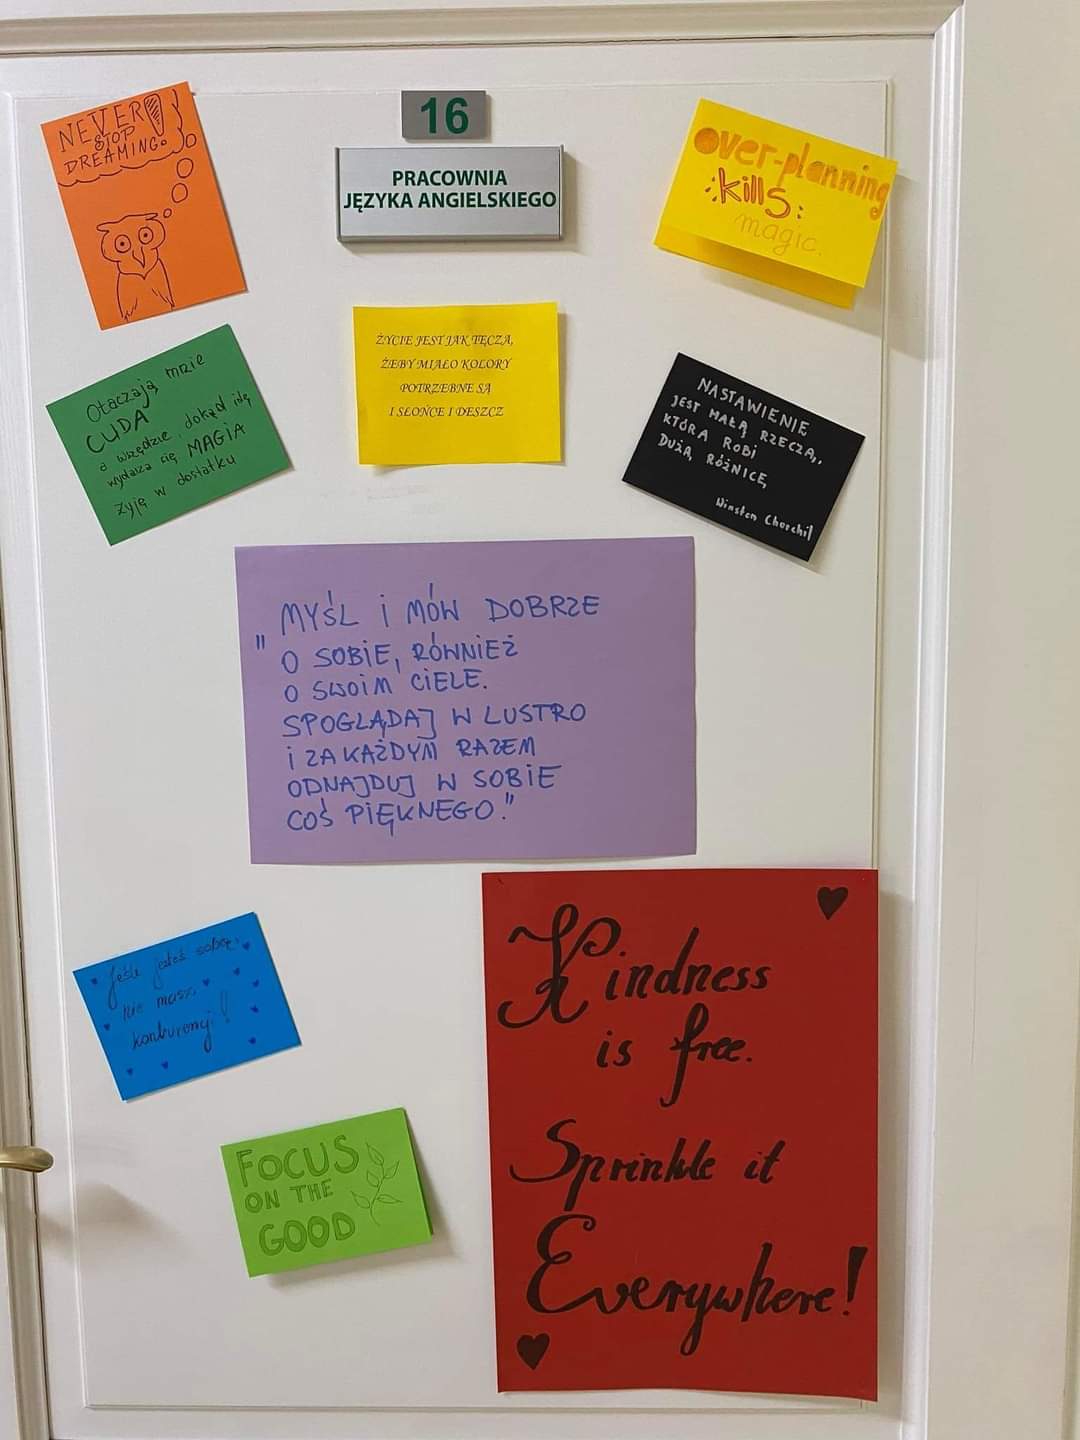 NEVER
STOP
DREAMING!
16
PRACOWNIA
JĘZYKA ANGIELSKIEGO
over-planning
kills
magic.
Otaczają mnie
CUDA
a wszędzie, dokąd idę,
wydarza się MAGIA
Żyję w dostatku
ŻYCIE JEST JAK TĘCZA,
ŻEBY MIAŁO KOLORY
POTRZEBNE SĄ
I SŁOŃCE I DESZCZ
NASTAWIENIE
JEST MAŁĄ RZECZĄ,
KTÓRA ROBI
DUŻĄ RÓŻNICĘ
Winston Churchil
"MYŚL I MÓW DOBRZE
O SOBIE, RÓWNIEŻ
O SWOIM CIELE.
SPOGLĄDAJ W LUSTRO
I ZA KAŻDYM RAZEM
ODNAJDUJ W SOBIE
COŚ PIĘKNEGO."
Jeśli jesteś sobą,
nie masz
konkurencji!
FOCUS
ON THE
GOOD
Kindness
is free.
Sprinkle it
Everywhere!